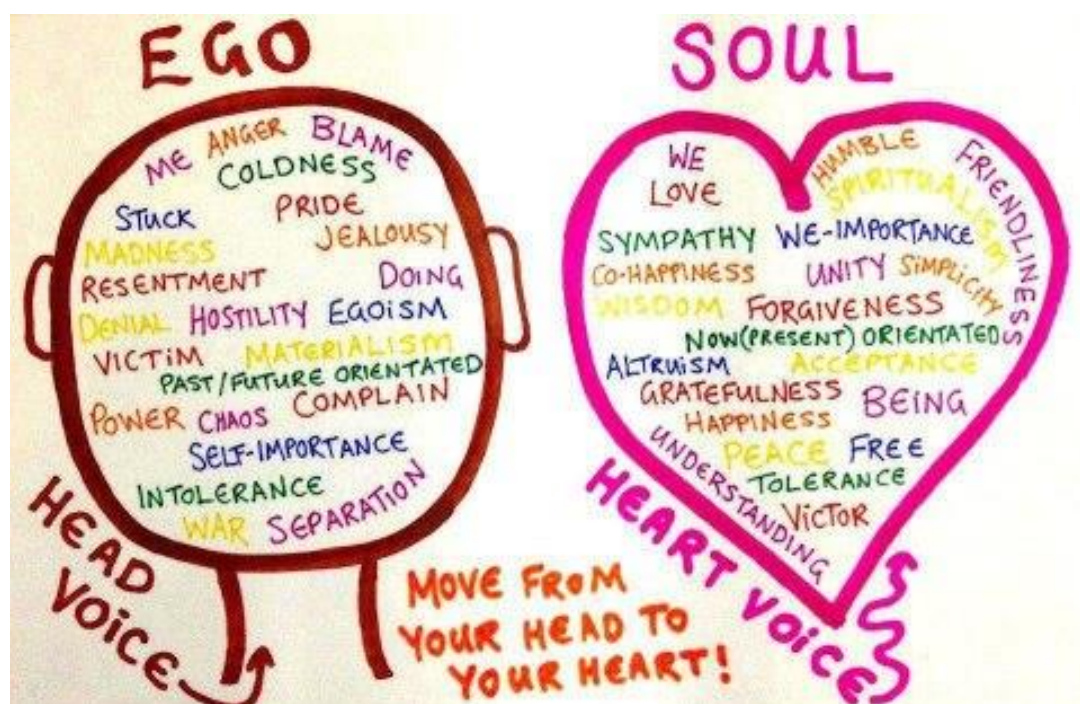 EGO
ME ANGER BLAME
COLDNESS
STUCK PRIDE
MADNESS JEALOUSY
RESENTMENT DOING
DENIAL HOSTILITY EGOiSM
VICTiM MATERIALISM
PAST/FUTURE ORIENTATED
POWER CHAOS COMPLAIN
SELF-IMPORTANCE
INTOLERANCE
WAR SEPARATION
HEAD
VOiCE
MOVE FROM
YOUR HEAD TO
YOUR HEART!
SOUL
WE HUMBLE FRIENDLINESS
LOVE SPIRITUALISM
SYMPATHY WE-IMPORTANCE
CO-HAPPINESS UNITY SiMPLICITY
WISDOM FORGIVENESS
NOW(PRESENT) ORIENTATED
ALTRUiSM ACCEPTANCE
GRATEFULNESS BEING
HAPPINESS
UNDERSTANDING PEACE FREE
TOLERANCE
ViCTOR
HEART VOiCE